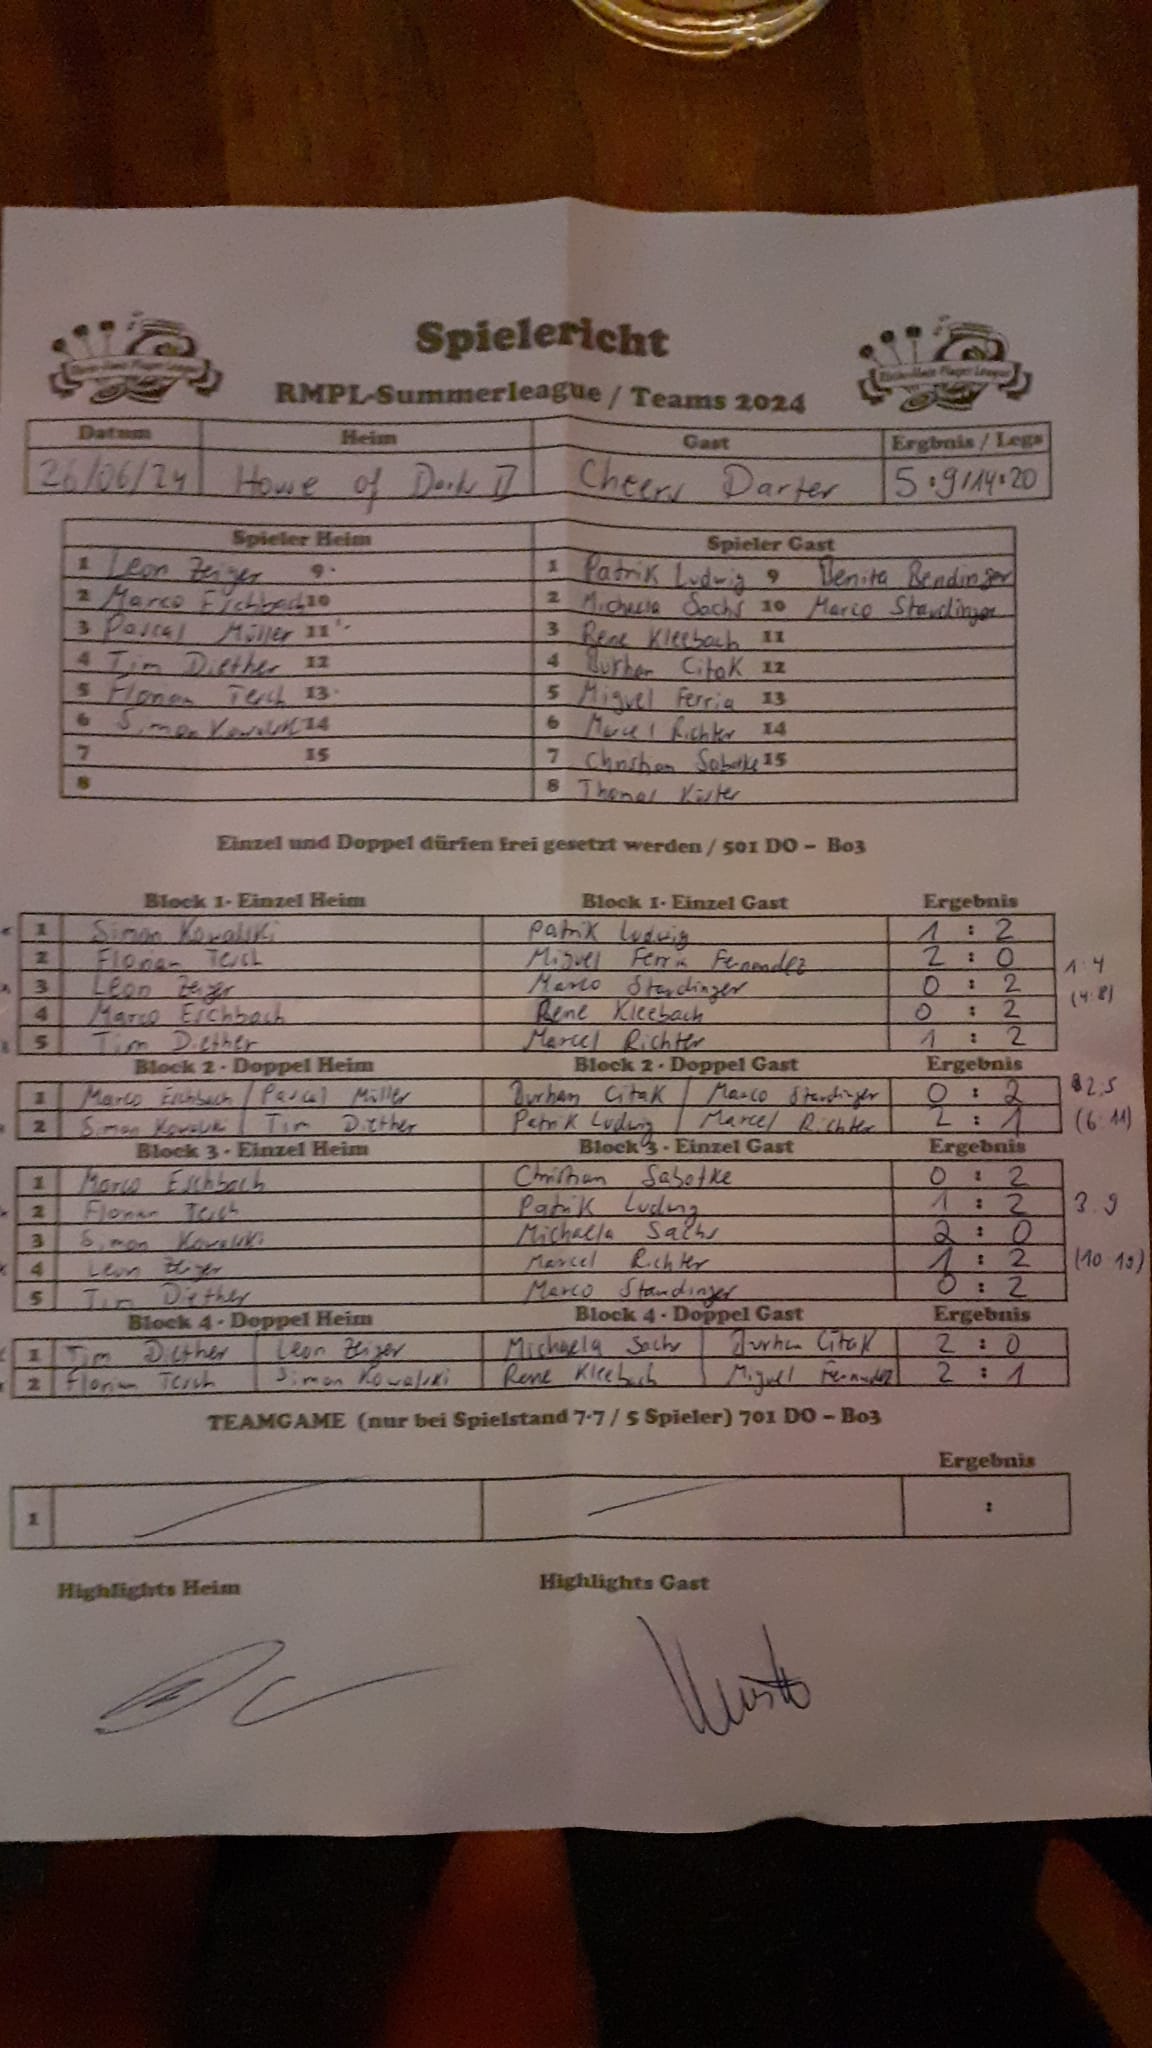 Spielericht
RMPL-Summerleague / Teams 2024
Datum Heim Gast Ergbnis / Legs
26/06/24 House of Darts II Cheers Darter 5:9/14:20
Spieler Heim Spieler Gast
1 Leon Zeiger 9 1 Patrik Ludwig 9 Benita Bendinger
2 Marco Eschbach 10 2 Michaela Sachs 10 Marco Standinger
3 Pascal Müller 11 3 Rene Kleebach 11
4 Tim Diether 12 4 Burhan Citak 12
5 Florian Tesch 13 5 Miguel Ferria 13
6 Simon Kowalski 14 6 Marcel Richter 14
7 15 7 Christian Sabotke 15
8 8 Thomas Küster
Einzel und Doppel dürfen frei gesetzt werden / 501 DO - Bo3
Block 1- Einzel Heim Block 1- Einzel Gast Ergebnis
1 Simon Kowalski Patrik Ludwig 1 : 2
2 Florian Tesch Miguel Ferria Fernandez 2 : 0 1:4
3 Leon Zeiger Marco Standinger 0 : 2 (4:8)
4 Marco Eschbach Rene Kleebach 0 : 2
5 Tim Diether Marcel Richter 1 : 2
Block 2 - Doppel Heim Block 2 - Doppel Gast Ergebnis
1 Marco Eschbach / Pascal Müller Burhan Citak / Marco Standinger 0 : 2 2:5
2 Simon Kowalski / Tim Diether Patrik Ludwig / Marcel Richter 2 : 1 (6:11)
Block 3 - Einzel Heim Block 3 - Einzel Gast Ergebnis
1 Marco Eschbach Christian Sabotke 0 : 2
2 Florian Tesch Patrik Ludwig 1 : 2 3:9
3 Simon Kowalski Michaela Sachs 2 : 0
4 Leon Zeiger Marcel Richter 1 : 2 (10:19)
5 Tim Diether Marco Standinger 0 : 2
Block 4 - Doppel Heim Block 4 - Doppel Gast Ergebnis
1 Tim Diether Leon Zeiger Michaela Sachs Burhan Citak 2 : 0
2 Florian Tesch Simon Kowalski Rene Kleebach Miguel Fernandez 2 : 1
TEAMGAME (nur bei Spielstand 7-7 / 5 Spieler) 701 DO - Bo3
Ergebnis
1 :
Highlights Heim Highlights Gast